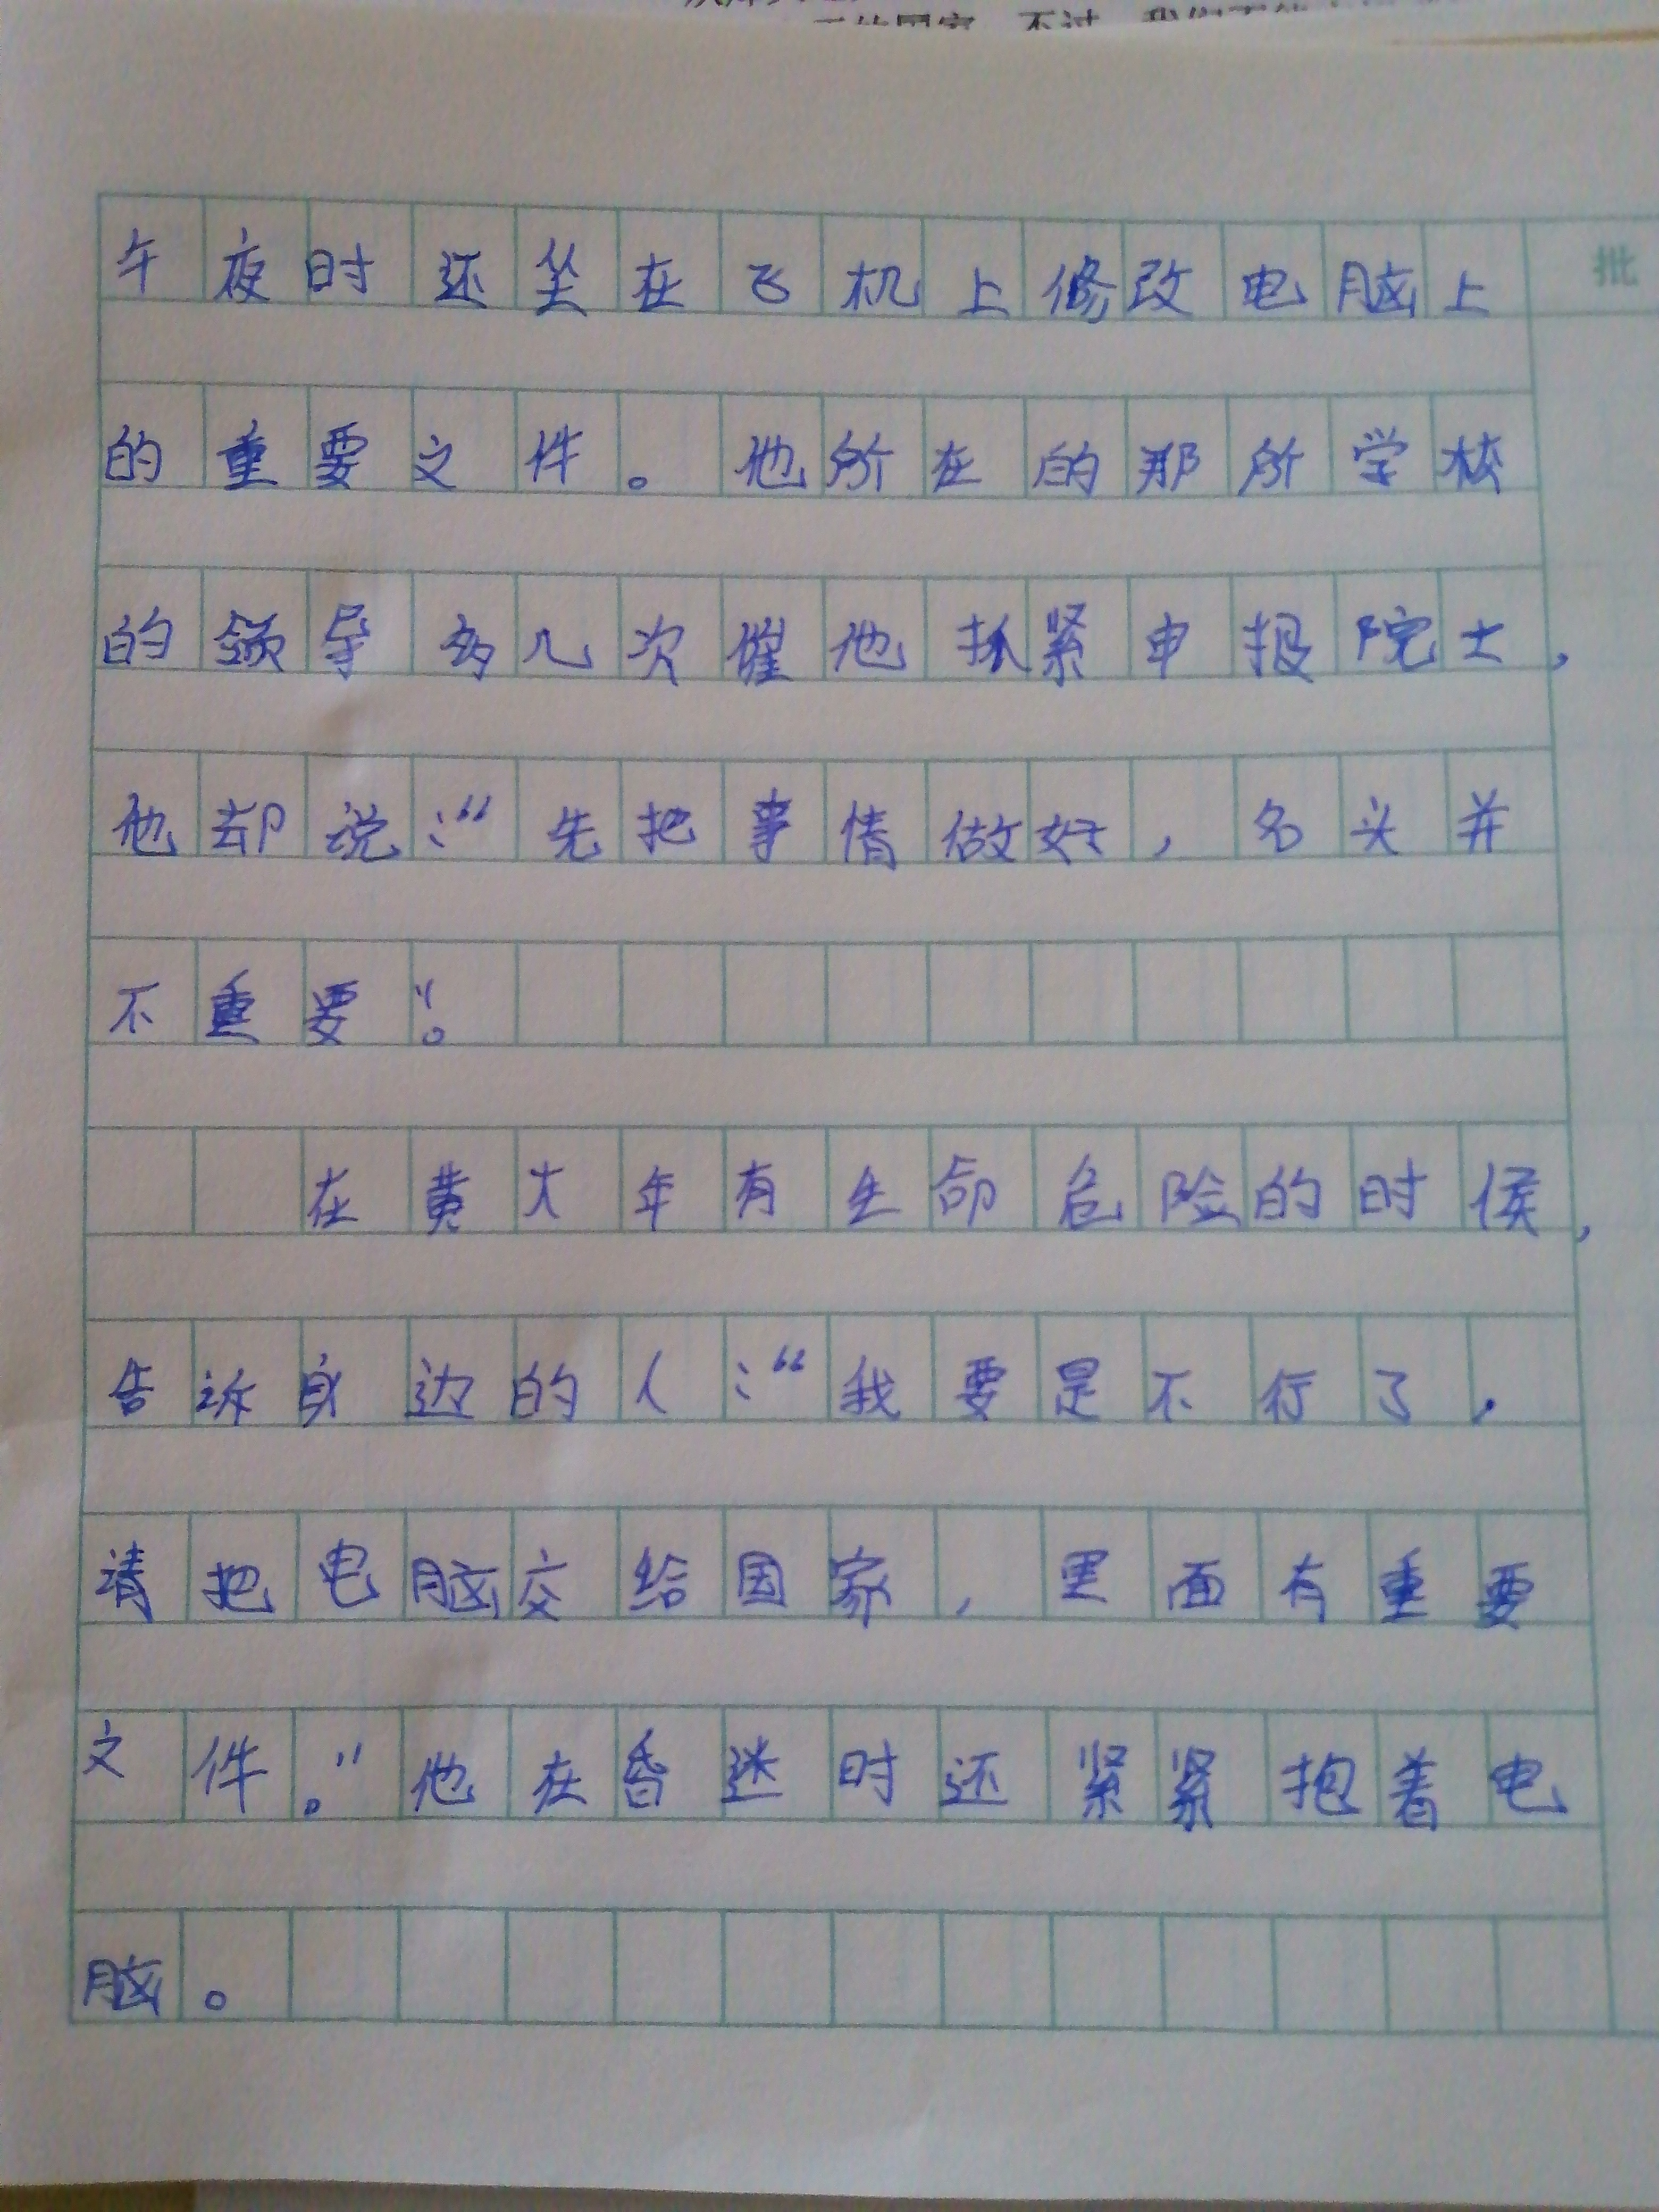 午夜时还坐在飞机上修改电脑上
的重要文件。他所在的那所学校
的领导多几次催他抓紧申报院士，
他却说：“先把事情做好，名头并
不重要”。
在黄大年有生命危险的时侯，
告诉身边的人：“我要是不行了，
请把电脑交给国家，里面有重要
文件。”他在昏迷时还紧紧抱着电
脑。
批